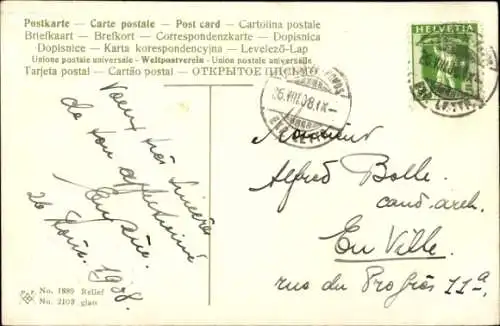 Postkarte – Carte postale – Post card – Cartolina postale
Briefkaart – Brefkort – Correspondenzkarte – Dopisnica
Dopisnice – Karta korespondencyjna – Levelező-Lap
Unione postale universale – Weltpostverein – Union postale universelle
Tarjeta postal – Cartão postal – ОТКРЫТОЕ ПИСЬМО
HELVETIA
26.VIII.08.IX
Monsieur
Alfred Bolle
cand. arch.
En Ville.
rue du Progrès 11a.
Voeux très sincères
de ton affectionné
26 Août 1908.
No. 1889 Relief
No. 2103 glatt